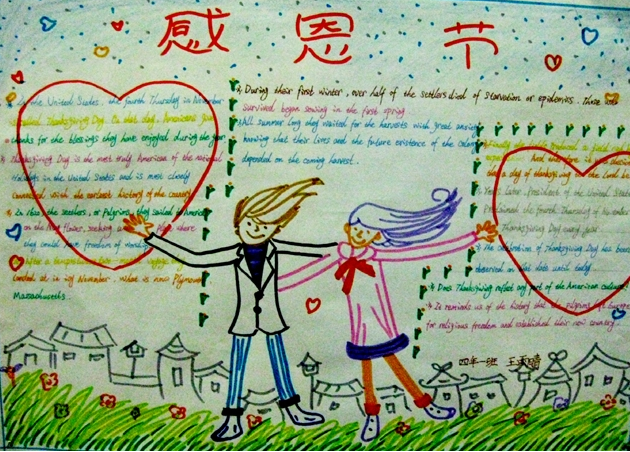 感恩节
In the United States, the fourth Thursday in November
Thanksgiving Day. On that day, Americans give
thanks for the blessings they have enjoyed during the year.
Thanksgiving Day is the most truly American of the national
Holidays in the United States and is most closely
connected with the earliest history of the country.
the settlers, or Pilgrims, they sailed to America
on the May flower, seeking a place where
they could have freedom of
After a
landed at in November, what is now Plymouth
Massachusetts.
During their first winter, over half of the settlers died of starvation or epidemics. Those who
survived began sowing in the first spring.
All summer long they waited for the harvests with great anxiety
knowing that their lives and the future existence of the colony
depended on the coming harvest.
Finally
that a day of thanksgiving to the Lord be
Years later, President of the United States
the fourth Thursday of November
Thanksgiving Day every year.
The celebration of Thanksgiving Day has been
observed on that date until today.
Does Thanksgiving reflect any part of the American culture?
It reminds us of the history that the pilgrims left Europe
for religious freedom and established their new country.
四年一班 王